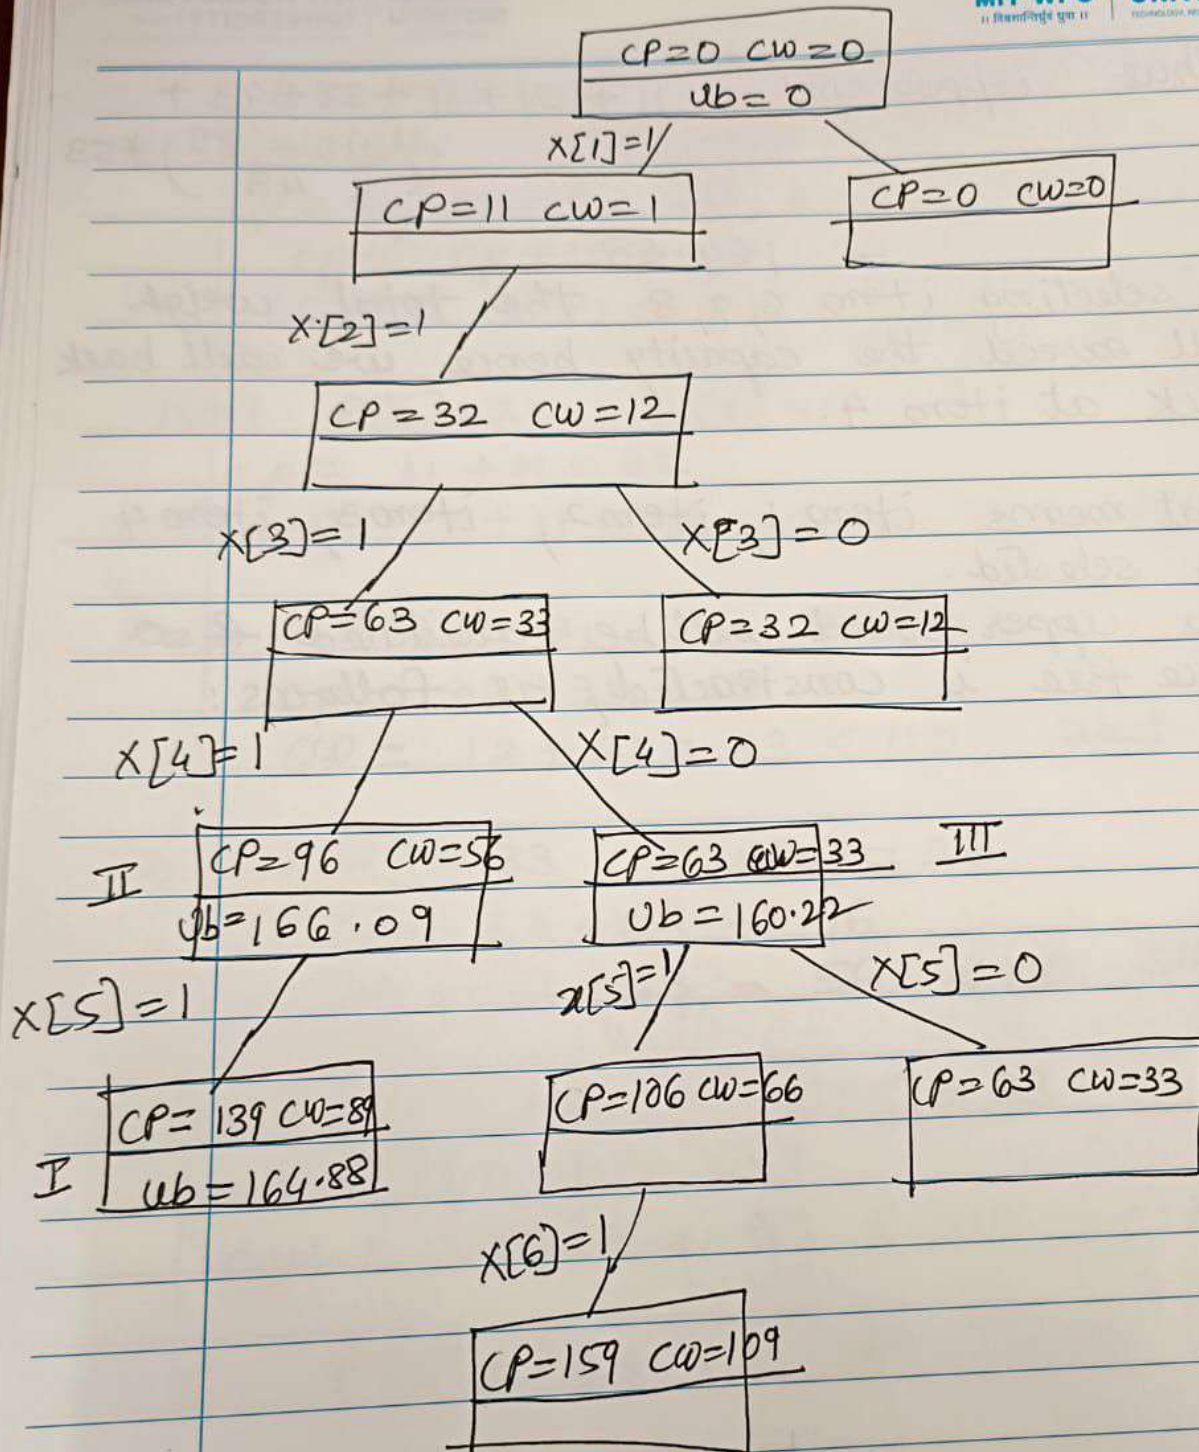 CP=0 CW=0
Ub=0
X[1]=1
CP=11 CW=1
CP=0 CW=0
X[2]=1
CP=32 CW=12
X[3]=1
X[3]=0
CP=63 CW=33
CP=32 CW=12
X[4]=1
X[4]=0
II
CP=96 CW=56
Ub=166.09
CP=63 CW=33
Ub=160.22
III
X[5]=1
x[5]=1
X[5]=0
I
CP=139 CW=89
Ub=164.88
CP=106 CW=66
CP=63 CW=33
X[6]=1
CP=159 CW=109